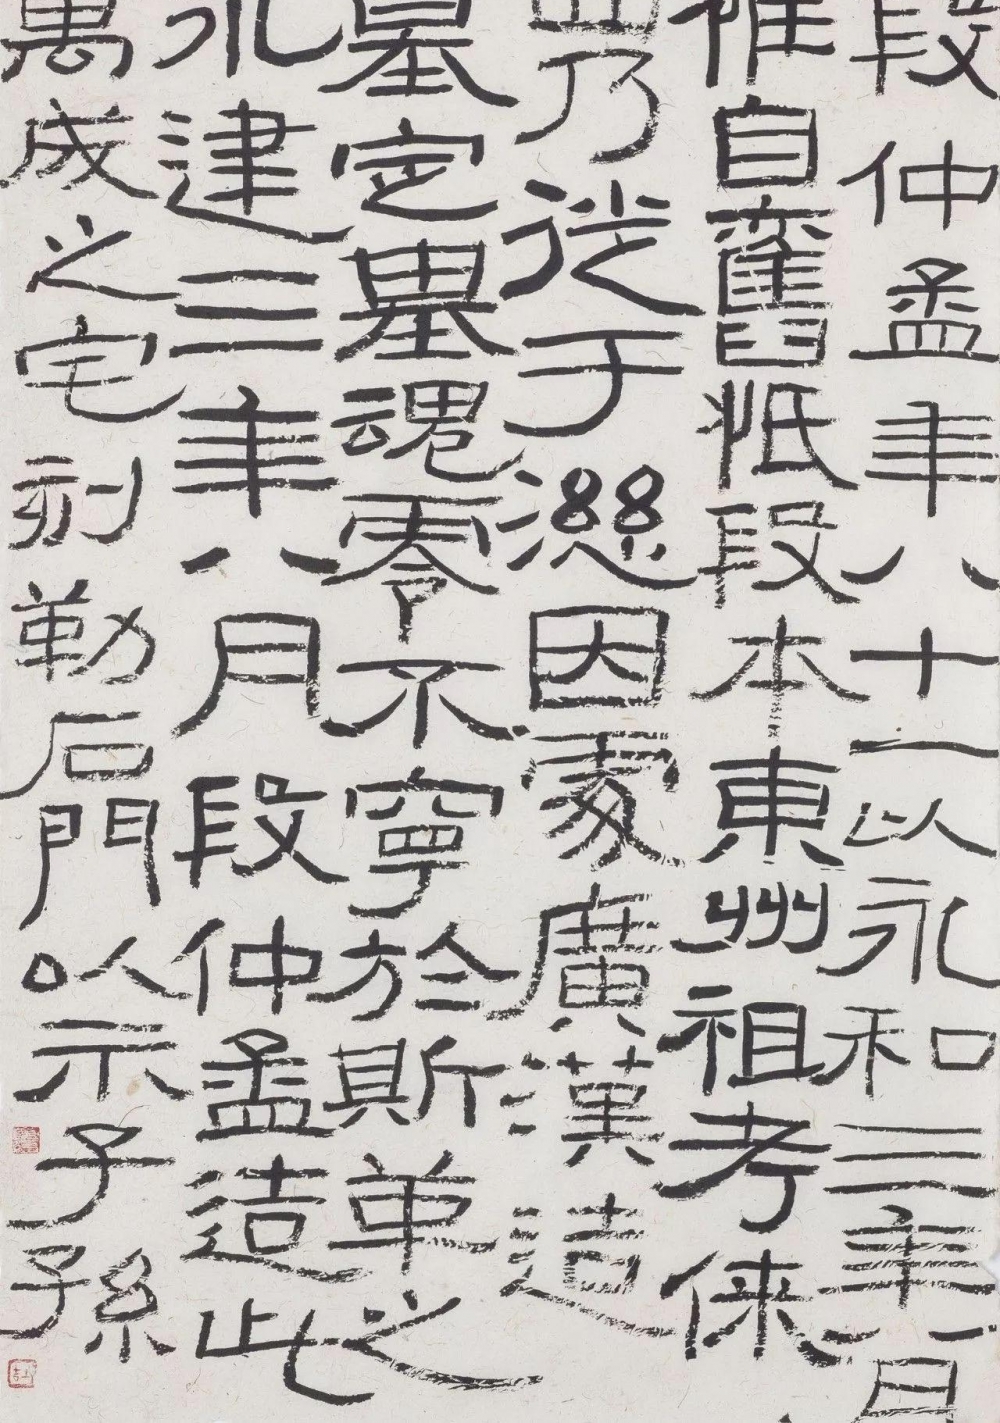 段仲孟年八十一以永和三年八月
惟自舊祇段本東州祖考徠
西乃徙于慈因處廣漢造
墓定墓魂零不寧於斯革之
永建三年八月段仲孟造此
萬成之宅刻勒石門以示子孫